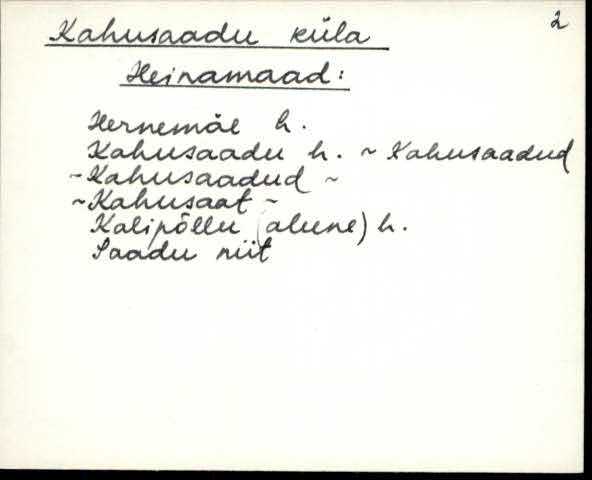 2
Kahusaadu küla
Heinamaad:
Hernemäe h.
Kahusaadu h. ~ Kahusaadud
~Kahusaadud ~
~Kahusaat ~
Kalipõllu (alune) h.
Saadu niit